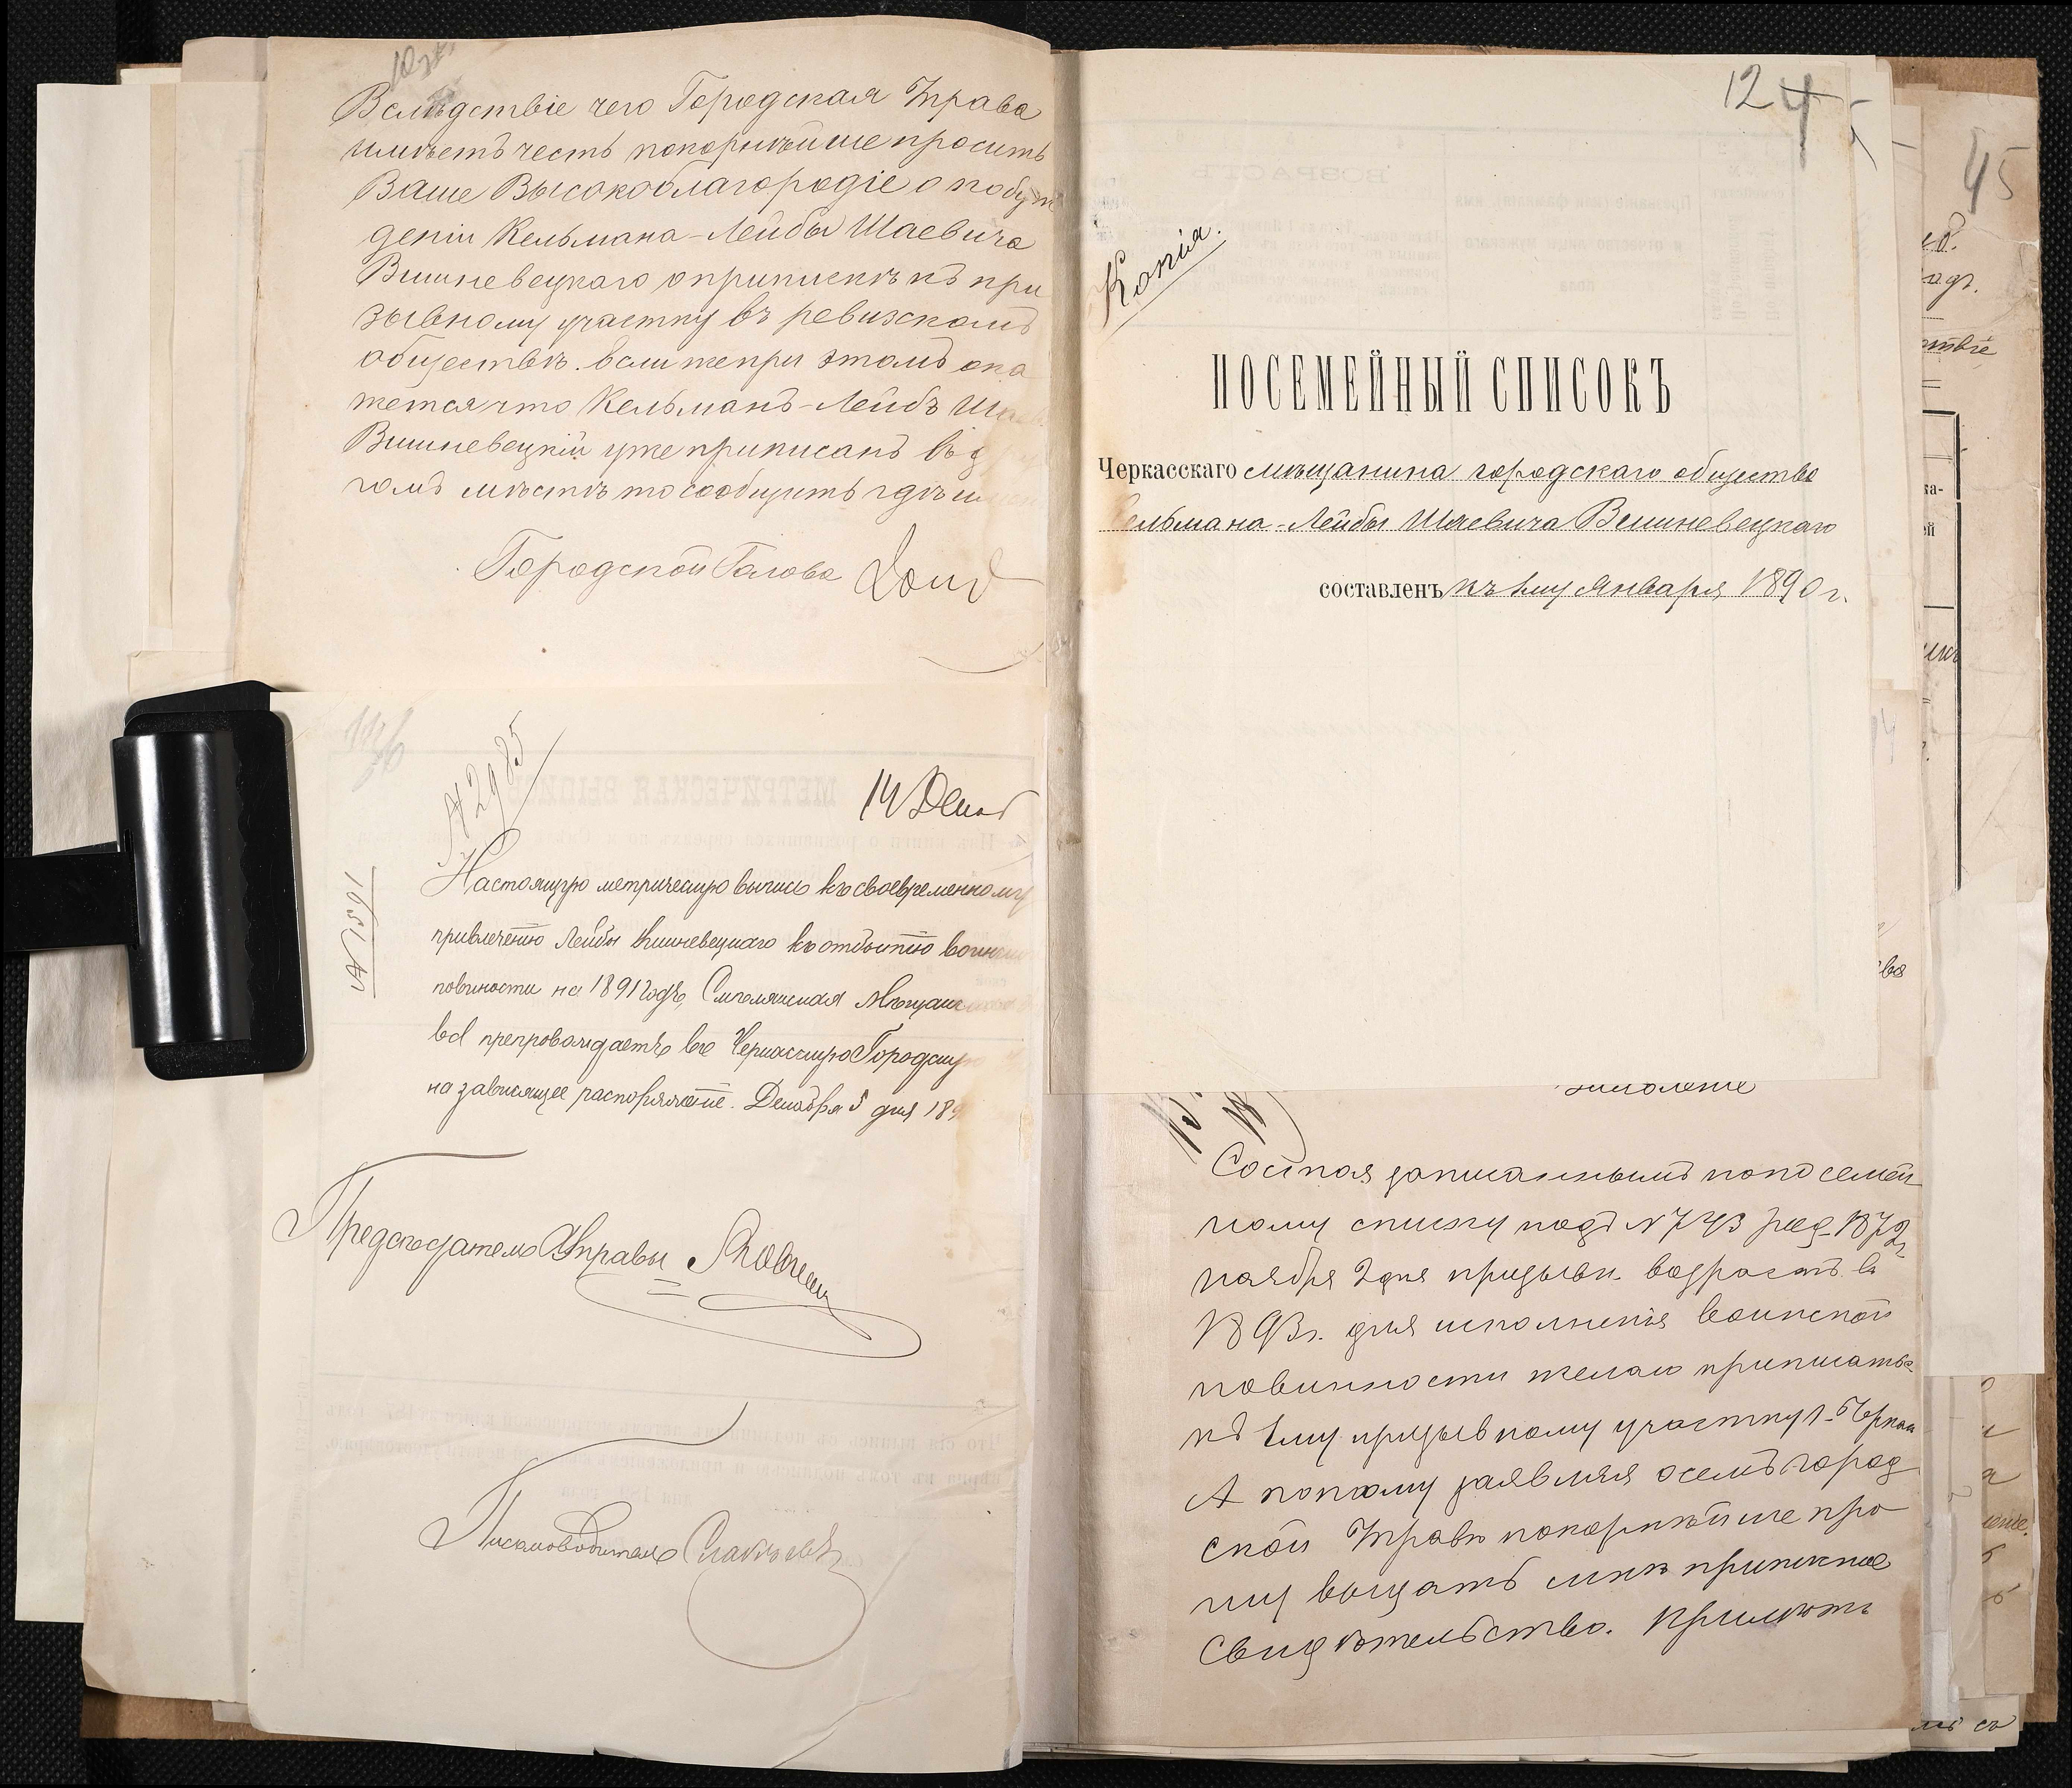 Вслѣдствіе чего Городская Управа
имѣетъ честь покорнѣйше просить
Ваше Высокоблагородіе о побуж
деніи Кельмана-Лейбы Шаевича
Вишневецкаго о припискѣ къ при
зывному участку въ ревизскомъ
обществѣ. Если же при этомъ ока
жется что Кельманъ-Лейбъ Ша
Вишневецкій уже приписанъ въ д
гомъ мѣстѣ то сообщить гдѣ и
Городской Голова
№ 2985
14 Декаб
№ 1591
Настоящую метрическую выпись къ своевременному
привлеченію Лейбы Вишневецкаго къ отбытію воинск
повиности на 1891 годъ, Смѣлянская Мѣщанск
препровождаетъ въ Черкасскую Городскую
на зависящее распоряженіе. Декабря 5 дня 189
Предсѣдатель Управы
Письмоводитель
124
45
Копія.
ПОСЕМЕЙНЫЙ СПИСОКЪ
Черкасскаго мѣщанина городскаго общества
Кельмана-Лейбы Шаевича Вишневецкаго
составленъ къ 1му Января 1890 г.
Состоя записаннымъ по посемей
ному списку подъ № 743 род. 1872 г.
ноября 2 дня призывн. возрастъ въ
1893 г. для исполненія воинской
повинности желаю приписаться
къ 1му призывному участку г. Черкас
А потому заявляя о семъ Город
ской Управѣ покорнѣйше про
шу выдать мнѣ приписное
Свидѣтельство. Примѣты